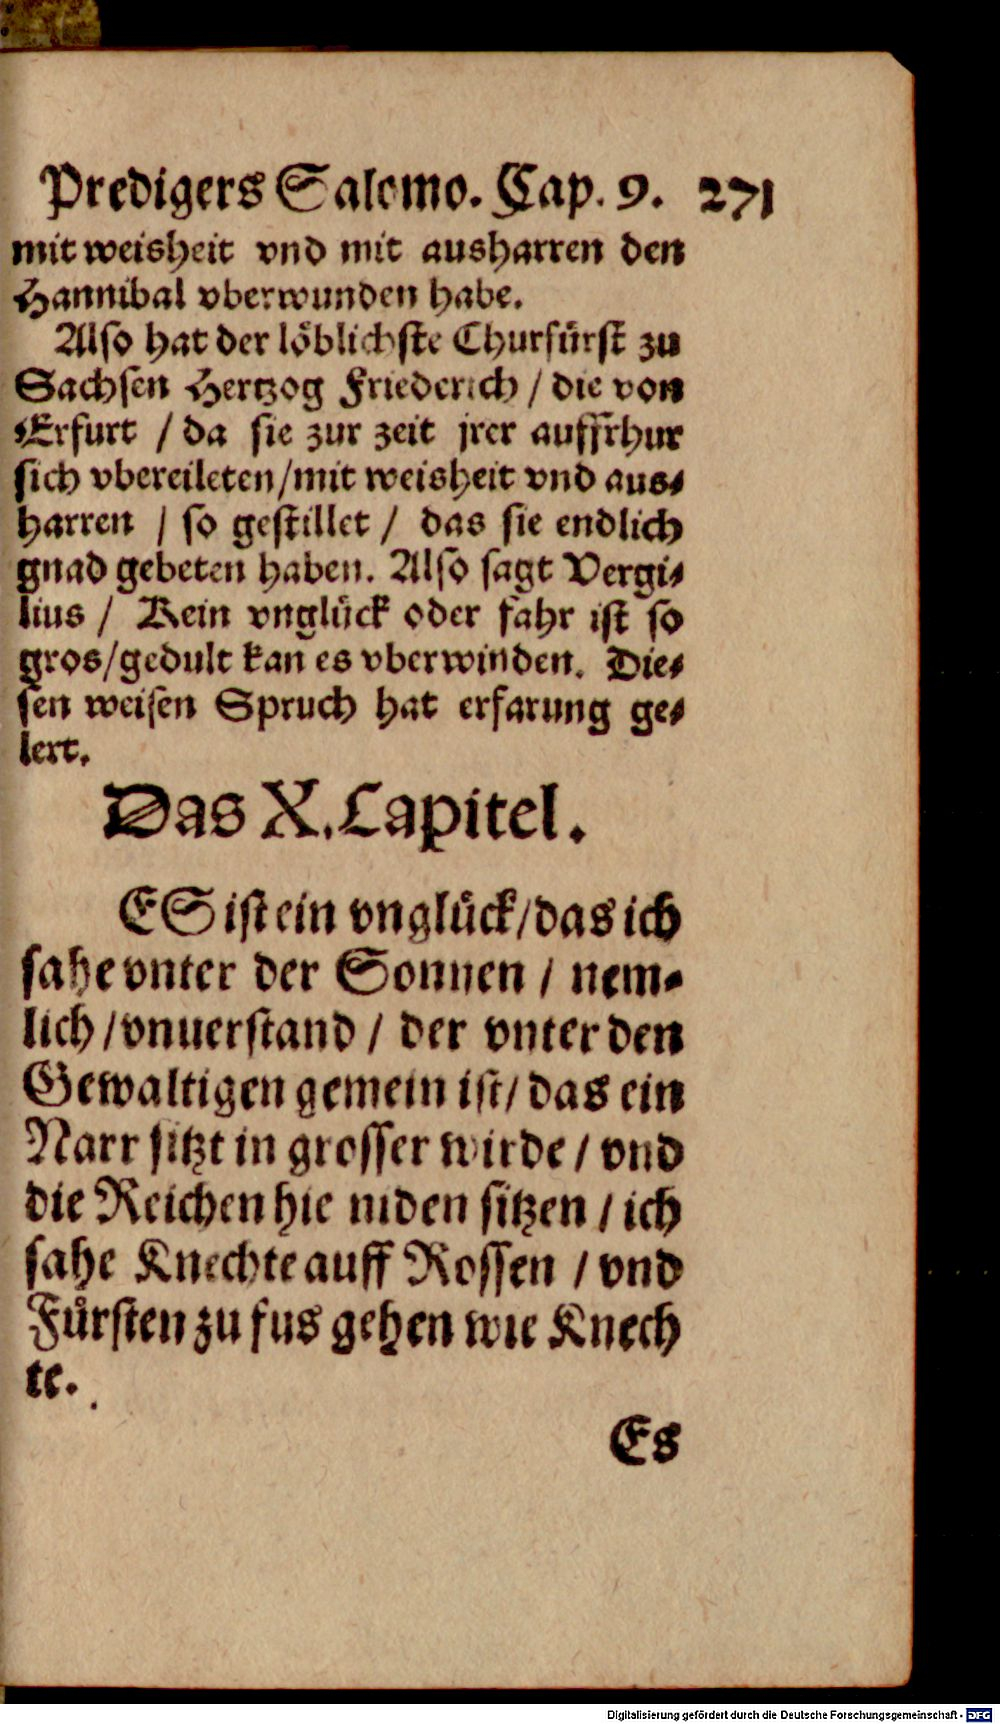 Predigers Salomo. Cap. 9. 271
mit weisheit vnd mit ausharren den
Hannibal vberwunden habe.
Also hat der löblichste Churfürst zu
Sachsen Hertzog Friederich / die von
Erfurt / da sie zur zeit jrer auffrhur
sich vbereileten / mit weisheit vnd aus-
harren / so gestillet / das sie endlich
gnad gebeten haben. Also sagt Vergi-
lius / Kein vnglück oder fahr ist so
gros / gedult kan es vberwinden. Die-
sen weisen Spruch hat erfarung ge-
lert.
Das X. Capitel.
ES ist ein vnglück / das ich
sahe vnter der Sonnen / nem-
lich / vnuerstand / der vnter den
Gewaltigen gemein ist / das ein
Narr sitzt in grosser wirde / vnd
die Reichen hie niden sitzen / ich
sahe Knechte auff Rossen / vnd
Fürsten zu fus gehen wie Knech
te.
Es
Digitalisierung gefördert durch die Deutsche Forschungsgemeinschaft - DFG